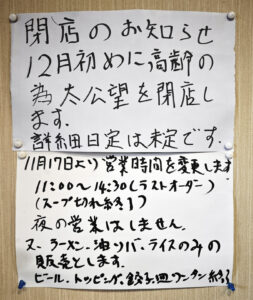 閉店のお知らせ
12月初めに高齢の
為太公望を閉店し
ます。
詳細日定は未定です。
11月17日より営業時間を変更します
11:00〜14:30(ラストオーダー)
(スープ切れ終了)
夜の営業はしません。
又、ラーメン、油ソバ、ライスのみの
販売とします。
ビール、トッピング、餃子、皿ワンタン終了